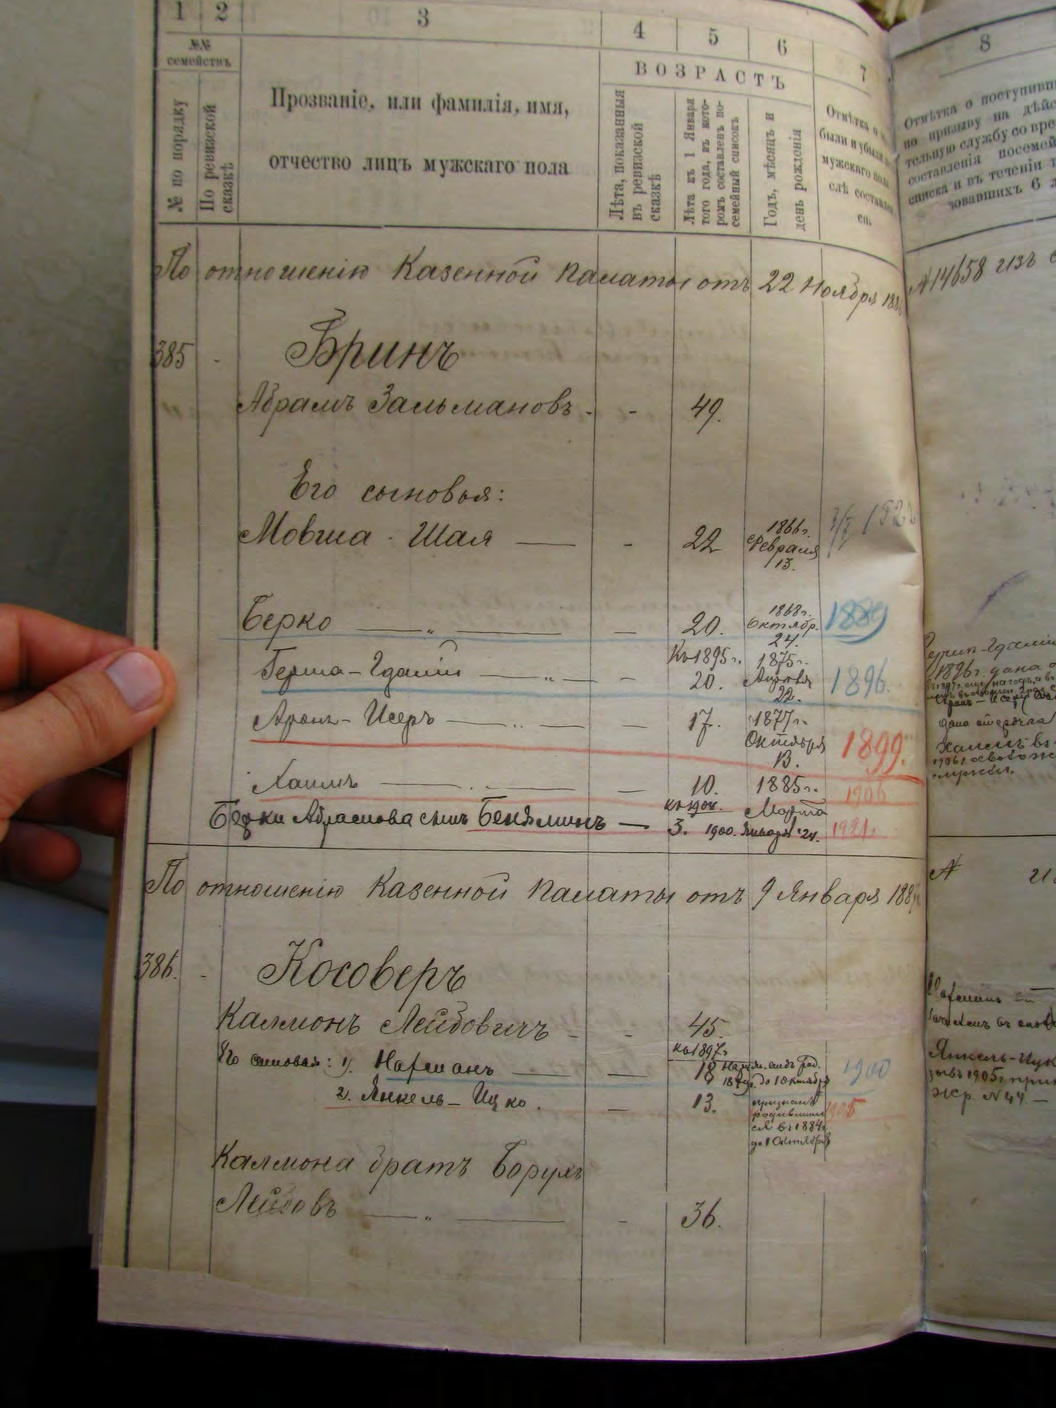 1 2 3 4 5 6 7 8
№№ семействъ
№ по порядку
По ревизской сказкѣ
Прозваніе, или фамилія, имя,
отчество лицъ мужскаго пола
ВОЗРАСТЪ
Лѣта, показанныя въ ревизской сказкѣ
Лѣта къ 1 Января того года, въ которомъ составленъ посемейный списокъ
Годъ, мѣсяцъ и день рожденія
Отмѣтка о
были и убыли
мужскаго пола
слѣ составлен
ея.
Отмѣтка о поступивш
по призыву на дѣй
тельную службу со вре
составленія посемей
списка и въ теченіи
зовавшихъ 6 л
По отношенію Казенной Палаты отъ 22 Ноября 188
№ 14658 изъ
385 - Бринъ
Абрамъ Зальмановъ - - 49.
Его сыновья:
Мовша - Шая — - 22 1866г. Февраля 13.
Берко — „ — — 20. 1868г. Октябр. 24. 1889
Герша-Гдалій — „ — — Къ 1895г. 20. 1875г. Апрѣля 22. 1896.
Аронъ-Исеръ — „ — — 17. 1877г. Октября 13. 1899.
Хаимъ — — 10. 1885г. Марта 1906
Берки Абрамова сынъ Беньяминъ — къ 1904. 3. 1900. Января 24. 1921.
Герш-Гдалій
1896г. дана
Хаимъ въ
1906г. освобож
службы.
По отношенію Казенной Палаты отъ 9 Января 188
№ из
386. - Косоверъ
Калмонъ Лейбовичъ - - 45.
Его сыновья: 1). Нафманъ — — къ 1897г. 18 до 1 Октября 1900
2. Янкель-Ицко. — 13. признанъ родившимся въ 1884г. до 1 Октября 1905
Янкель-Ицк
зывъ 1905г. прин
жр. № 44 —
Калмона братъ Борухъ
Лейбовъ — „ — - 36.